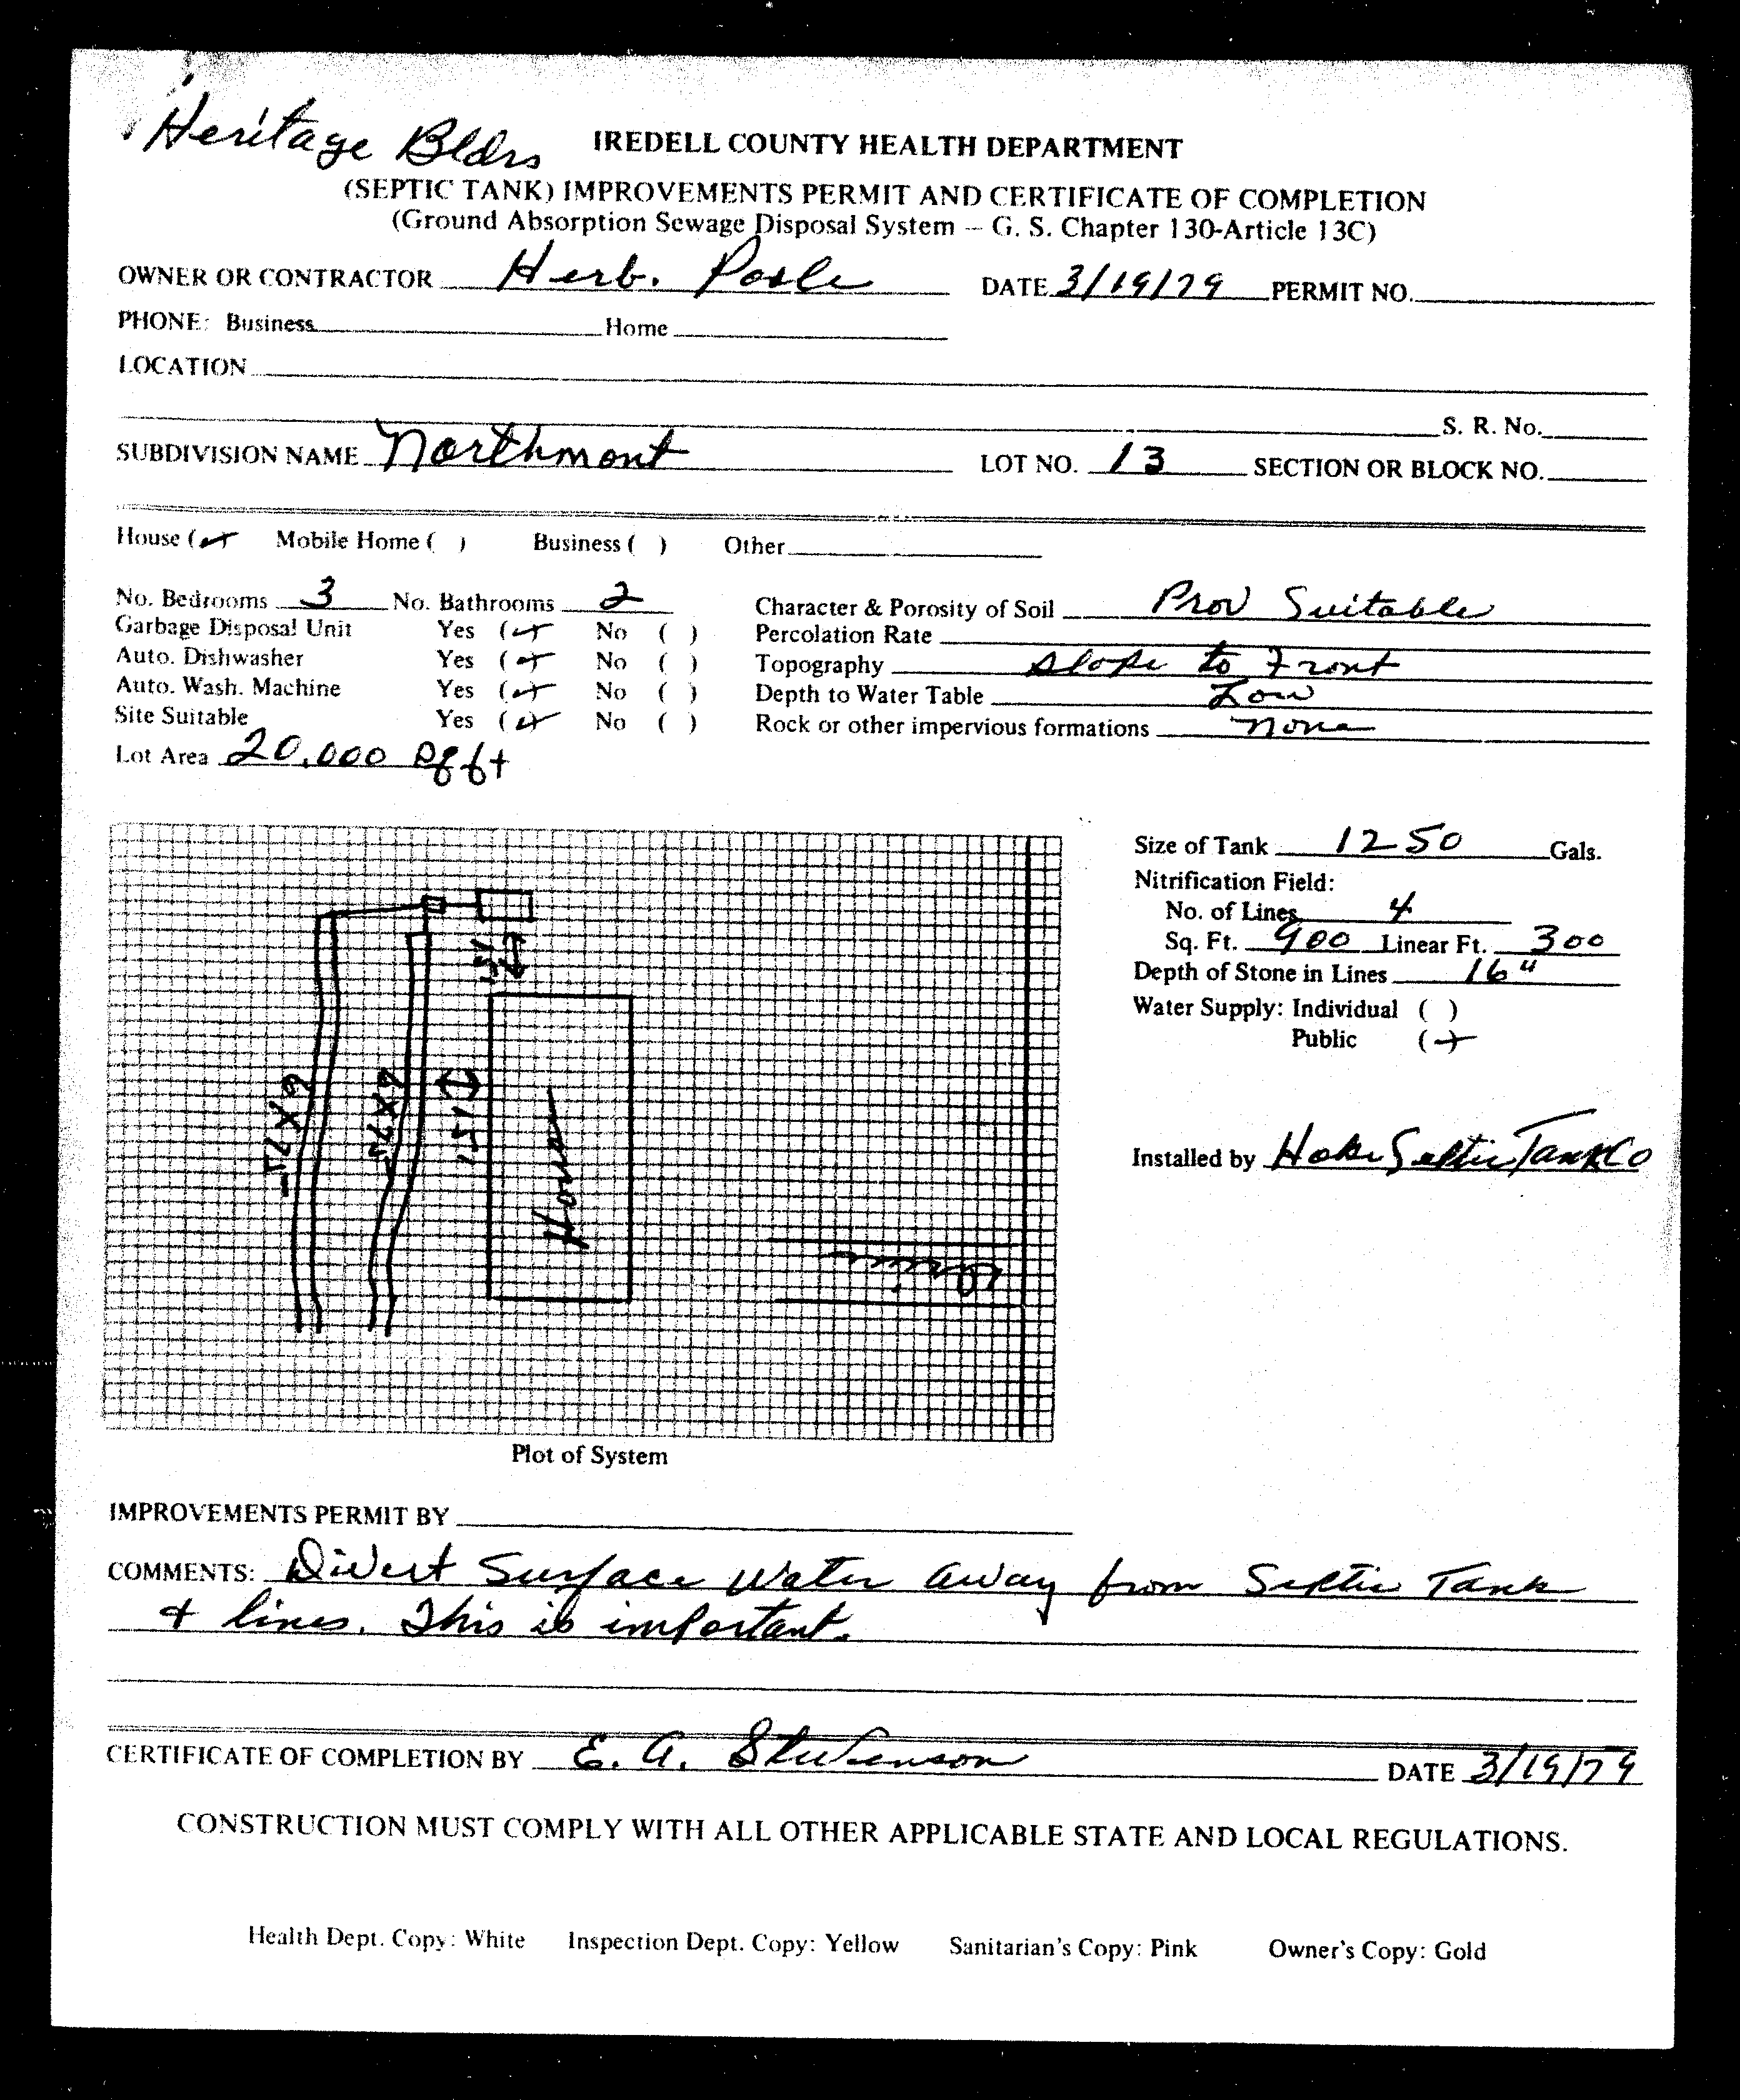 Heritage Bldrs
IREDELL COUNTY HEALTH DEPARTMENT
(SEPTIC TANK) IMPROVEMENTS PERMIT AND CERTIFICATE OF COMPLETION
(Ground Absorption Sewage Disposal System -- G. S. Chapter 130-Article 13C)
OWNER OR CONTRACTOR Herb. DATE 3/19/79 PERMIT NO.
PHONE: Business Home
LOCATION
S. R. No.
SUBDIVISION NAME Northmont LOT NO. 13 SECTION OR BLOCK NO.
House (✓) Mobile Home ( ) Business ( ) Other
No. Bedrooms 3 No. Bathrooms 2 Character & Porosity of Soil Prov Suitable
Garbage Disposal Unit Yes (✓) No ( ) Percolation Rate
Auto. Dishwasher Yes (✓) No ( ) Topography slope to Front
Auto. Wash. Machine Yes (✓) No ( ) Depth to Water Table Low
Site Suitable Yes (✓) No ( ) Rock or other impervious formations none
Lot Area 20,000 sq ft
Size of Tank 1250 Gals.
Nitrification Field:
No. of Lines 4
Sq. Ft. 900 Linear Ft. 300
Depth of Stone in Lines 16"
Water Supply: Individual ( )
Public (✓)
15'
6X75
6X75
15'
House
Installed by Septic Tank Co
Plot of System
IMPROVEMENTS PERMIT BY
COMMENTS: Divert Surface Water away from Septic Tank
+ lines. This is important.
CERTIFICATE OF COMPLETION BY E. A. Stevenson DATE 3/19/79
CONSTRUCTION MUST COMPLY WITH ALL OTHER APPLICABLE STATE AND LOCAL REGULATIONS.
Health Dept. Copy: White Inspection Dept. Copy: Yellow Sanitarian's Copy: Pink Owner's Copy: Gold